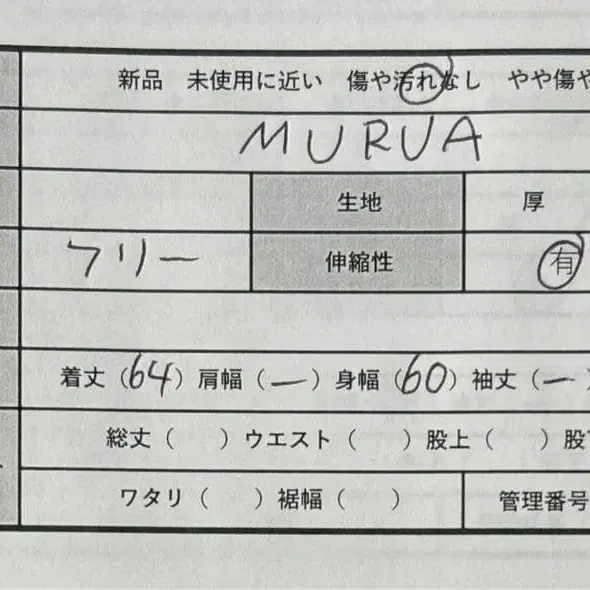 新品 未使用に近い 傷や汚れなし やや傷や
MURUA
生地 厚
フリー 伸縮性 有
着丈(64)肩幅(ー)身幅(60)袖丈(ー)
総丈( )ウエスト( )股上( )股下
ワタリ( )裾幅( ) 管理番号